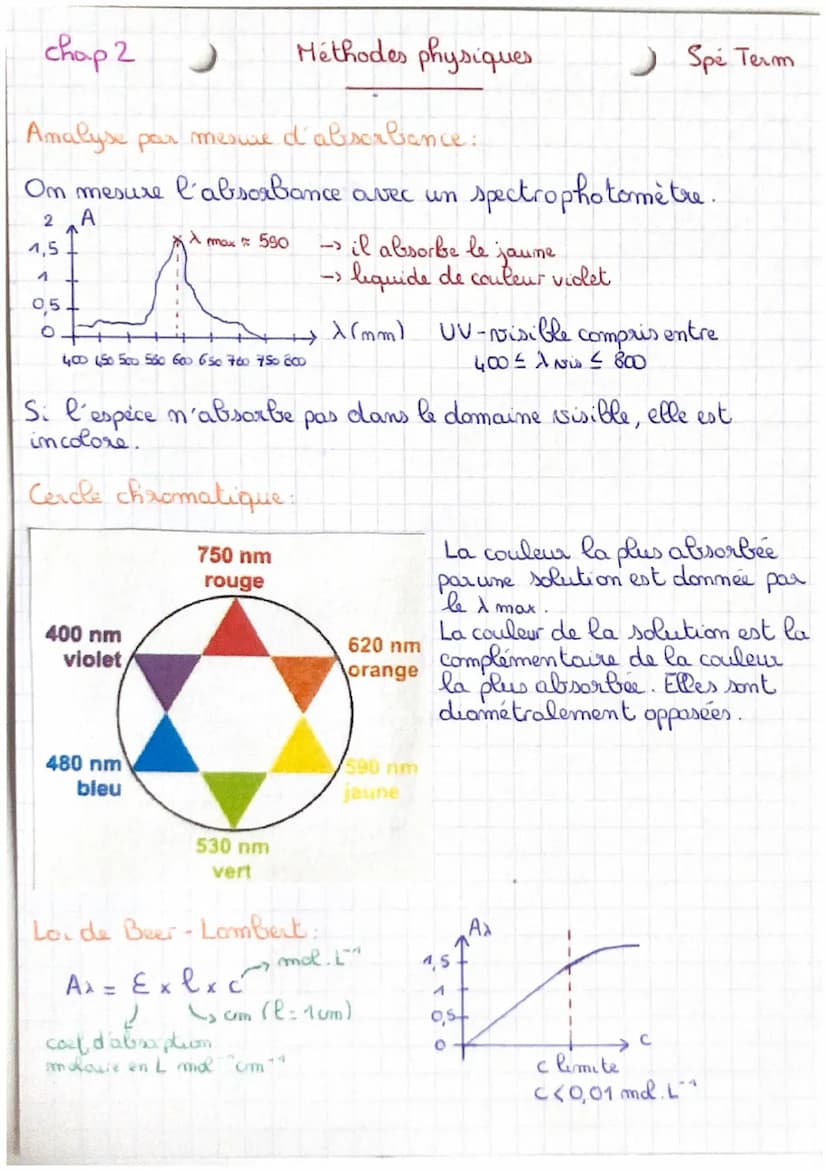 chap 2 Méthodes physiques Spé Term
Analyse par mesure d'absorbance :
On mesure l'absorbance avec un spectrophotomètre.
2 A
1,5
1
0,5
0
λ max ≈ 590
→ il absorbe le jaune
→ liquide de couleur violet
λ (nm)
400 450 500 550 600 650 700 750 800
UV-visible compris entre
400 ≤ λ vis ≤ 800
Si l'espèce n'absorbe pas dans le domaine visible, elle est
incolore.
Cercle chromatique :
750 nm
rouge
400 nm
violet
620 nm
orange
480 nm
bleu
590 nm
jaune
530 nm
vert
La couleur la plus absorbée
par une solution est donnée par
le λ max.
La couleur de la solution est la
complémentaire de la couleur
la plus absorbée. Elles sont
diamétralement opposées.
Loi de Beer - Lambert :
Aλ = Ɛ x l x c
mol.L⁻¹
cm (l = 1cm)
coef d'absorption
molaire en L mol⁻¹ cm⁻¹
Aλ
1,5
1
0,5
0
c
c limite
C < 0,01 mol.L⁻¹